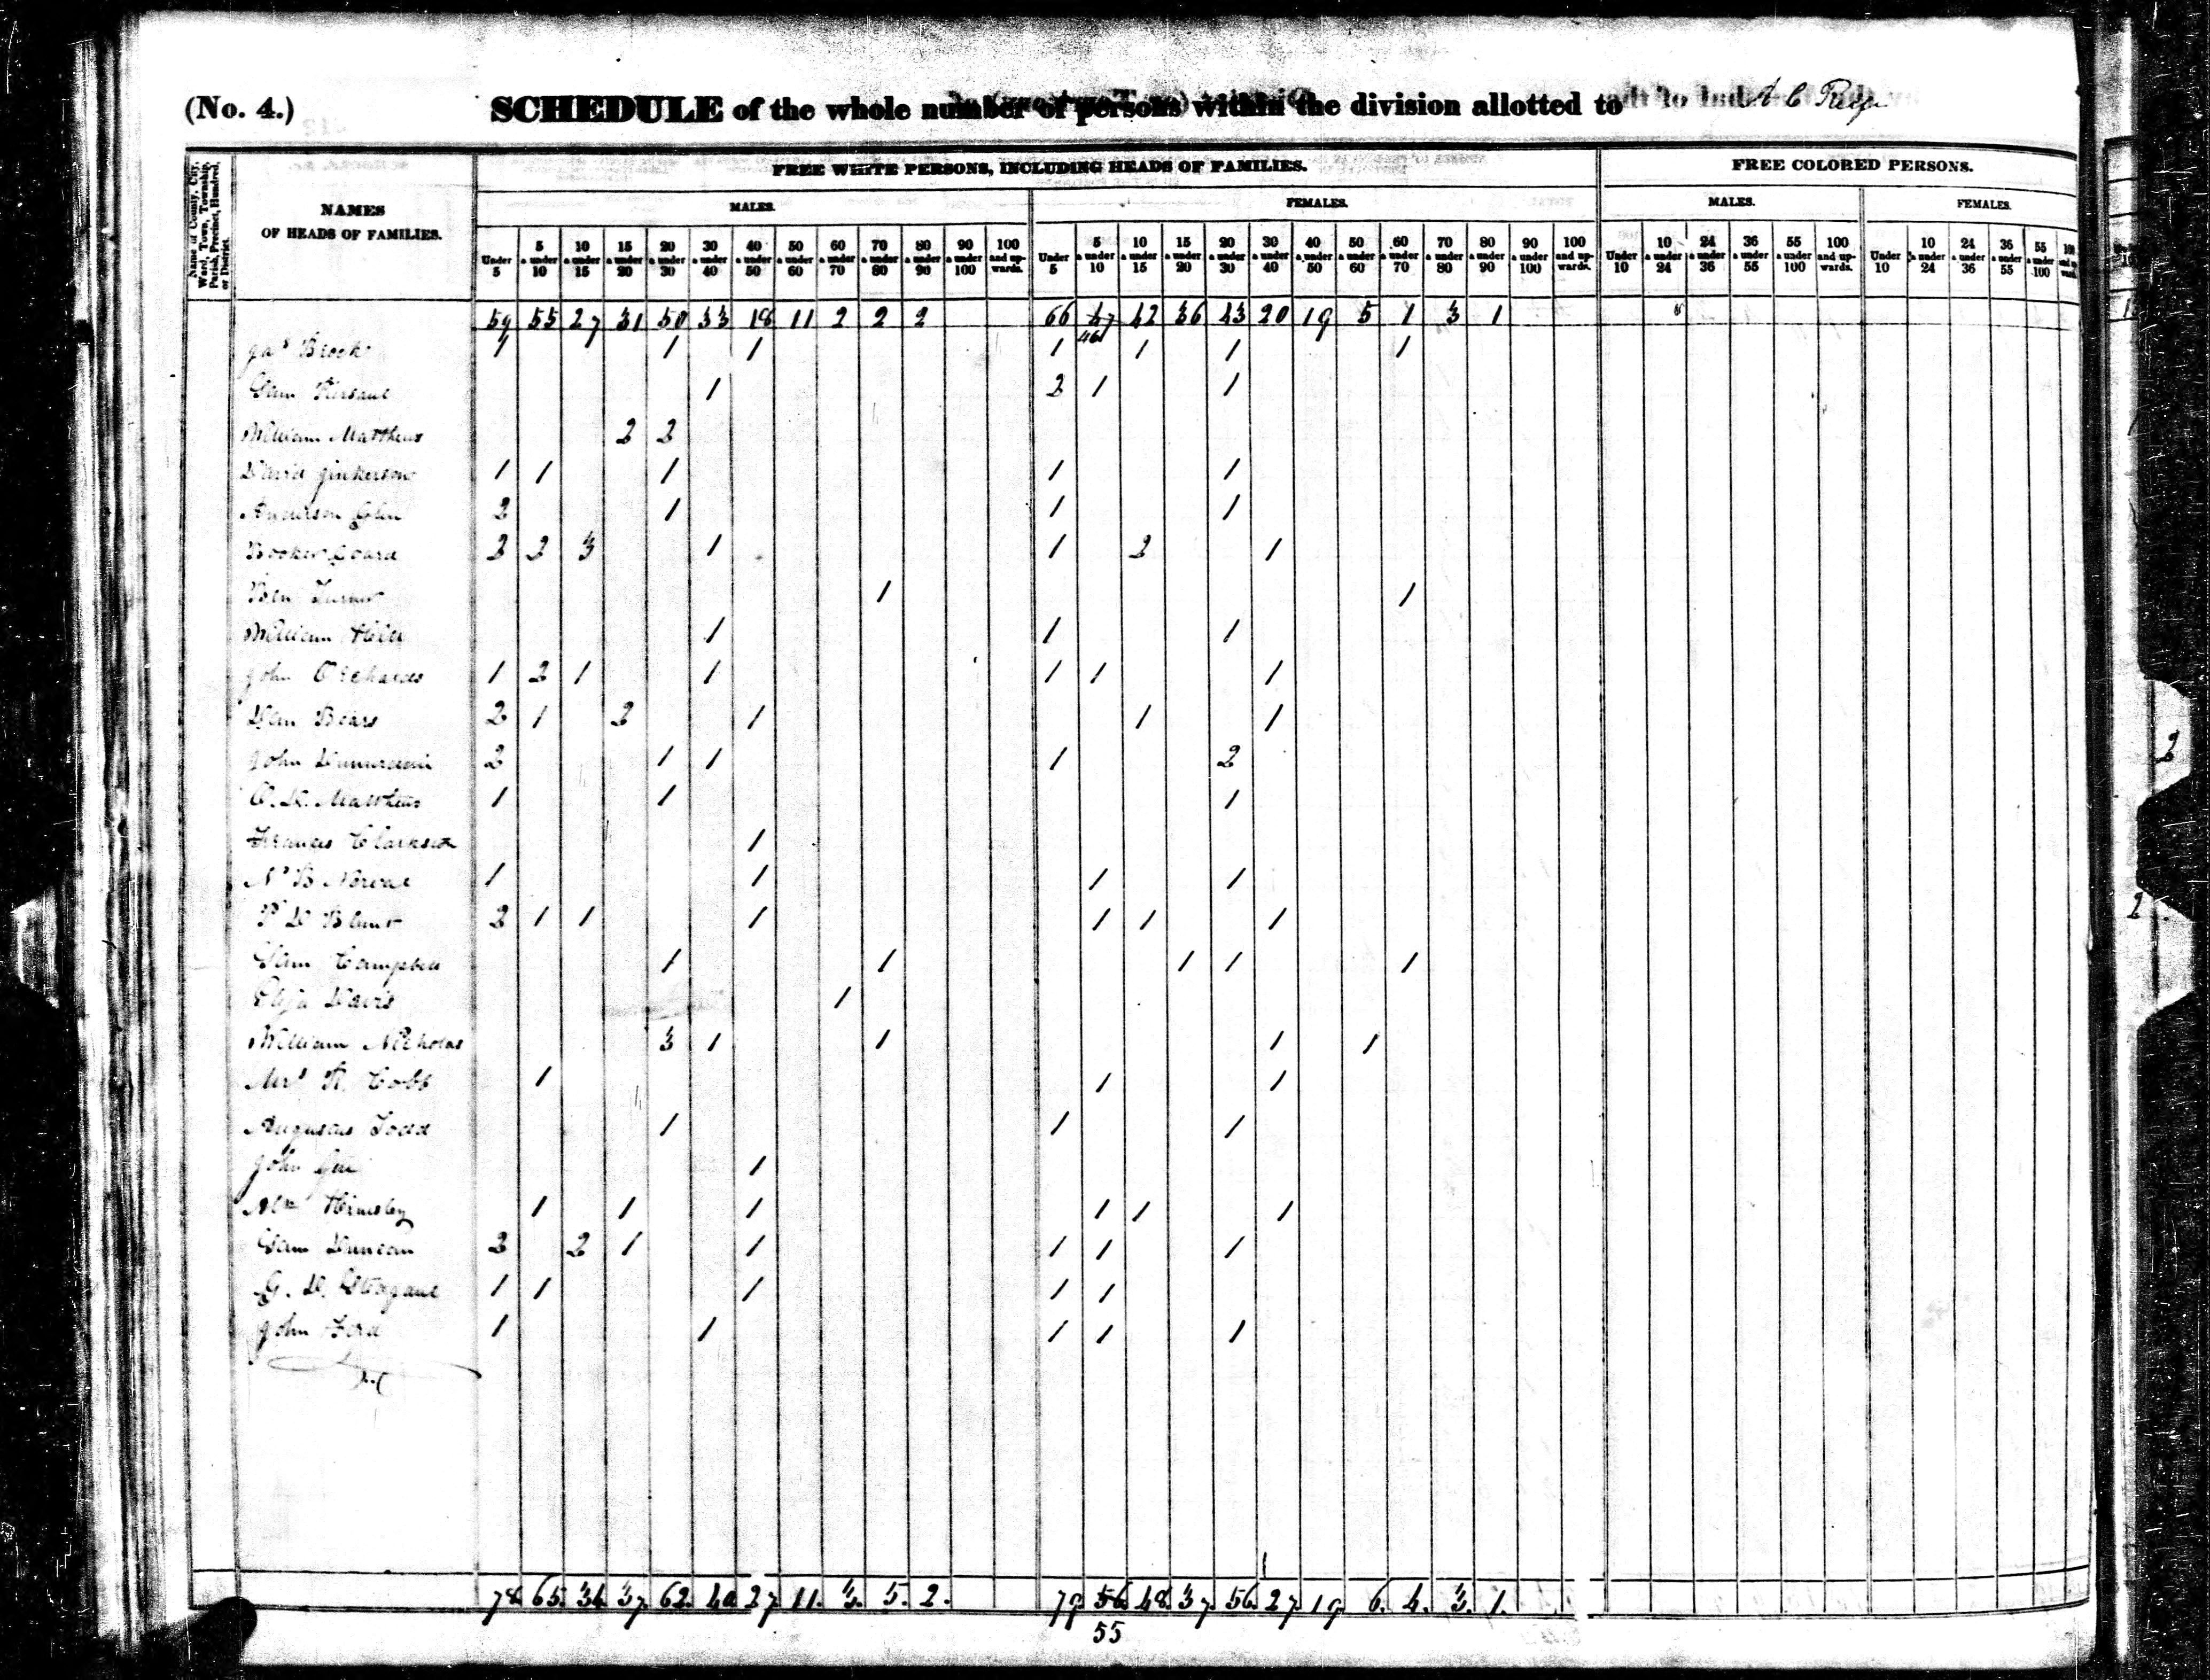 (No. 4.) SCHEDULE of the whole number of persons within the division allotted to A C
Name of County, City, Ward, Town, Township, Parish, Precinct, Hundred, or District.
NAMES OF HEADS OF FAMILIES.
FREE WHITE PERSONS, INCLUDING HEADS OF FAMILIES.
FREE COLORED PERSONS.
MALES. FEMALES. MALES. FEMALES.
Under 5 5 & under 10 10 & under 15 15 & under 20 20 & under 30 30 & under 40 40 & under 50 50 & under 60 60 & under 70 70 & under 80 80 & under 90 90 & under 100 100 and upwards.
Under 5 5 & under 10 10 & under 15 15 & under 20 20 & under 30 30 & under 40 40 & under 50 50 & under 60 60 & under 70 70 & under 80 80 & under 90 90 & under 100 100 and upwards.
Under 10 10 & under 24 24 & under 36 36 & under 55 55 & under 100 100 and upwards.
Under 10 10 & under 24 24 & under 36 36 & under 55 55 & under 100 100 and upwards.
59 55 27 31 50 33 18 11 2 2 2 66 47 42 36 43 20 19 5 1 3 1
46
Jas Brooks 1 1 1 1 1 1 1
Sam 1 2 1 1
William Matthews 2 2
David Jinkerson 1 1 1 1 1
Anderson 2 1 1 1
Booker 2 2 3 1 1 2 1
Ben Turner 1 1
William 1 1 1
John 1 2 1 1 1 1 1
Dan 2 1 2 1 1 1
John 2 1 1 1 2
Matthews 1 1 1
Francis Clarkson 1
B 1 1 1 1
P D 2 1 1 1 1 1 1
Sam Campbell 1 1 1 1 1
Elija Davis 1
William Nicholas 3 1 1 1 1
Mrs Cobb 1 1 1
Augustus Todd 1 1 1
John 1
1 1 1 1 1 1
Sam Duncan 2 2 1 1 1 1 1
G. D. 1 1 1 1 1
John Ford 1 1 1 1 1
78 65 34 37 62 40 27 11 3 5 2 79 56 48 37 56 27 19 6 4 3 1
55